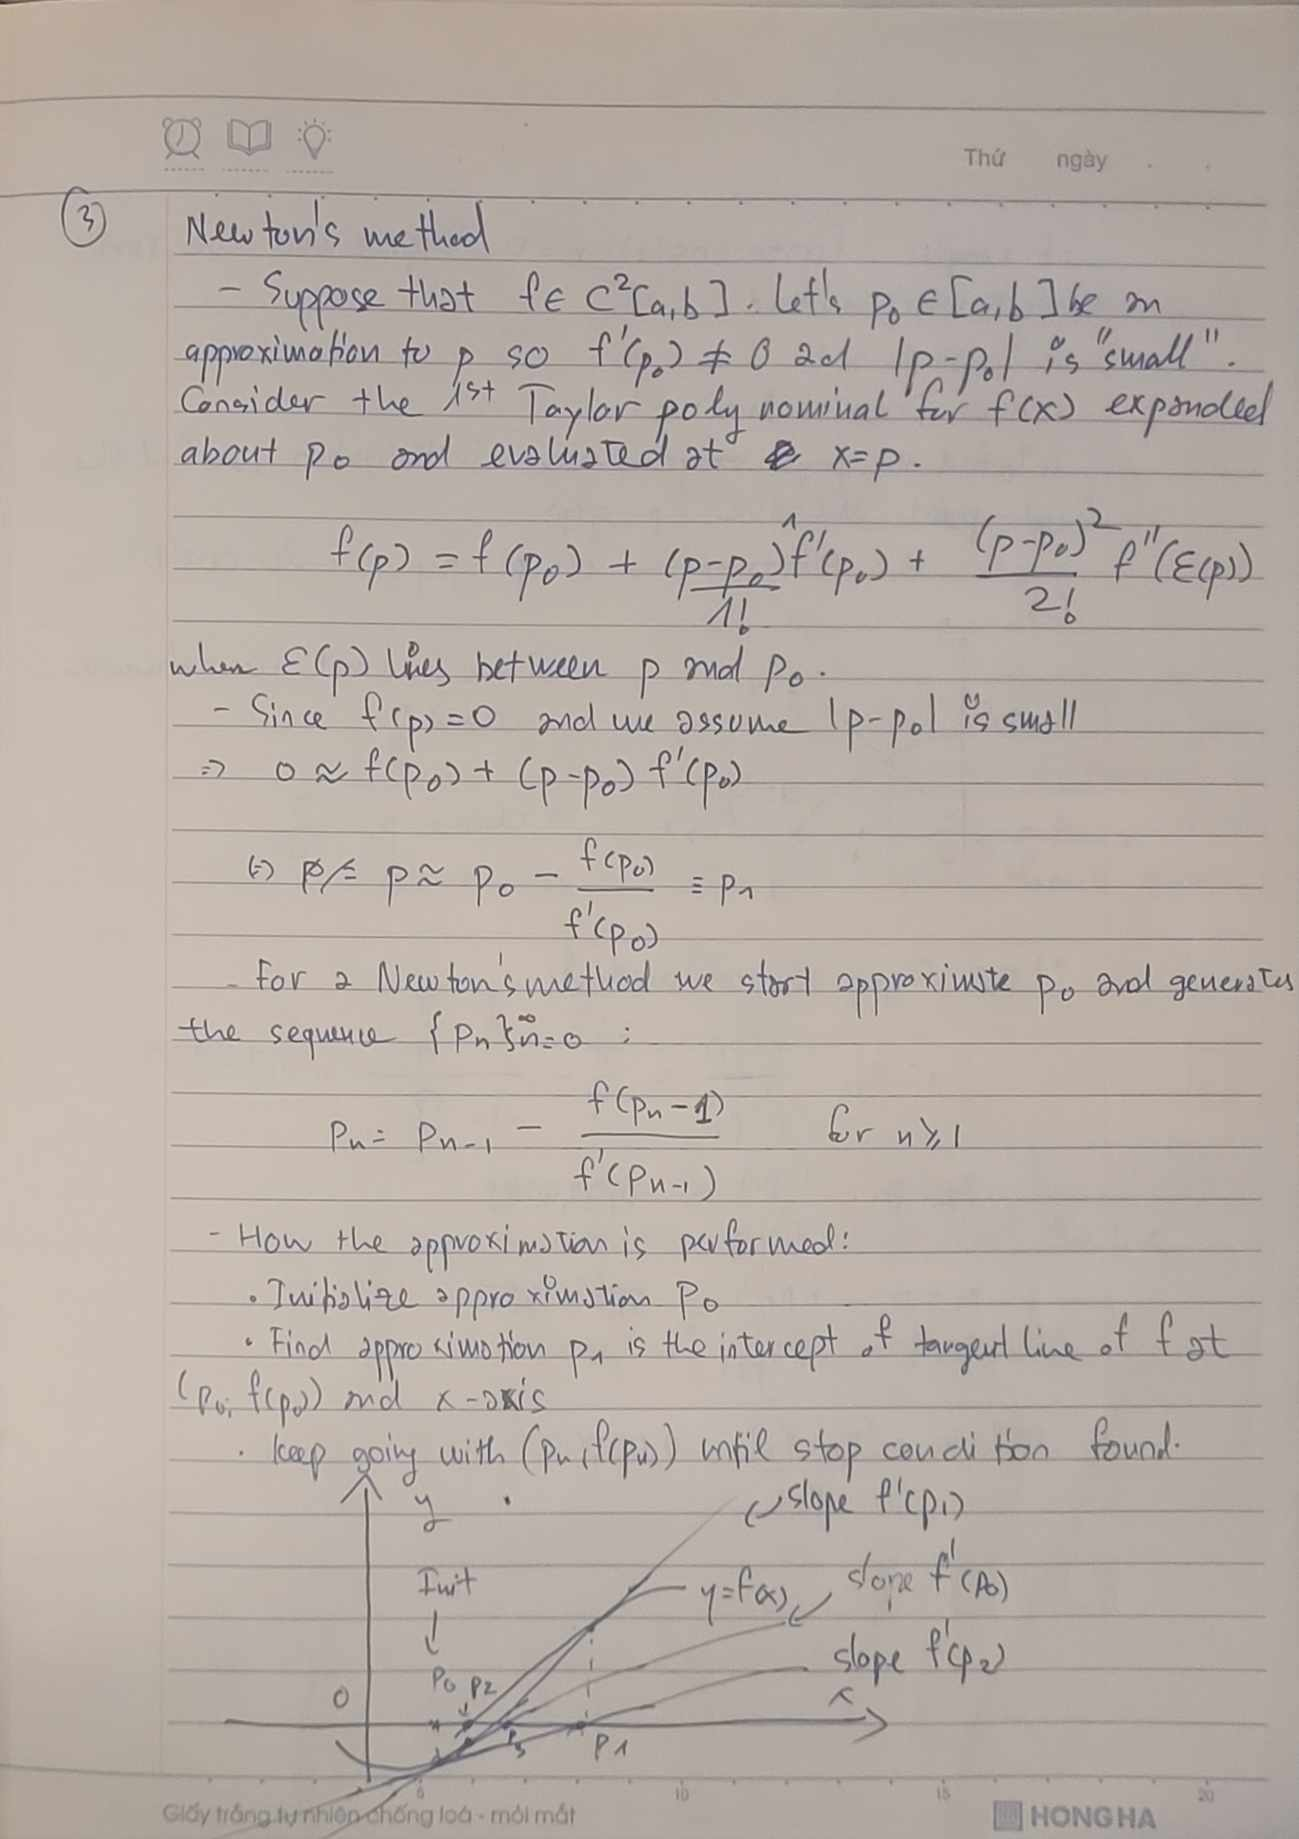 Thứ ngày
3
Newton's method
- Suppose that f ∈ C²[a,b]. Let's p₀ ∈ [a,b] be an
approximation to p so f'(p₀) ≠ 0 ad |p-p₀| is "small".
Consider the 1st Taylor polynominal for f(x) expanded
about p₀ and evaluated at x=p.
f(p) = f(p₀) + (p-p₀)¹/1! f'(p₀) + (p-p₀)²/2! f''(ε(p))
when ε(p) lies between p and p₀.
- Since f(p)=0 and we assume |p-p₀| is small
⇒ 0 ≈ f(p₀) + (p-p₀) f'(p₀)
⇔ p ≈ p₀ - f(p₀)/f'(p₀) ≡ p₁
- For a Newton's method we start approximate p₀ and generates
the sequence {pₙ}ₙ₌₀^∞ :
pₙ = pₙ₋₁ - f(pₙ-1)/f'(pₙ₋₁) for n ≥ 1
- How the approximation is performed:
• Initialize approximation p₀
• Find approximation p₁ is the intercept of tangent line of f at
(p₀; f(p₀)) and x-axis
• Keep going with (pₙ, f(pₙ)) until stop condition found.
y
slope f'(p₁)
Init
y=f(x)
slope f'(p₀)
slope f'(p₂)
0
p₀ p₂
x
p₃
p₁
5 10 15 20
Giấy trắng tự nhiên chống loá - mỏi mắt
HONG HA